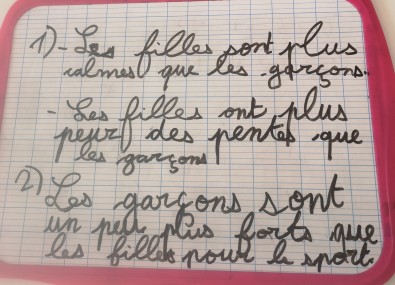 1) - Les filles sont plus
calmes que les garçons.
- Les filles ont plus
peur des pentes que
les garçons
2) Les garçons sont
un peu plus forts que
les filles pour le sport.